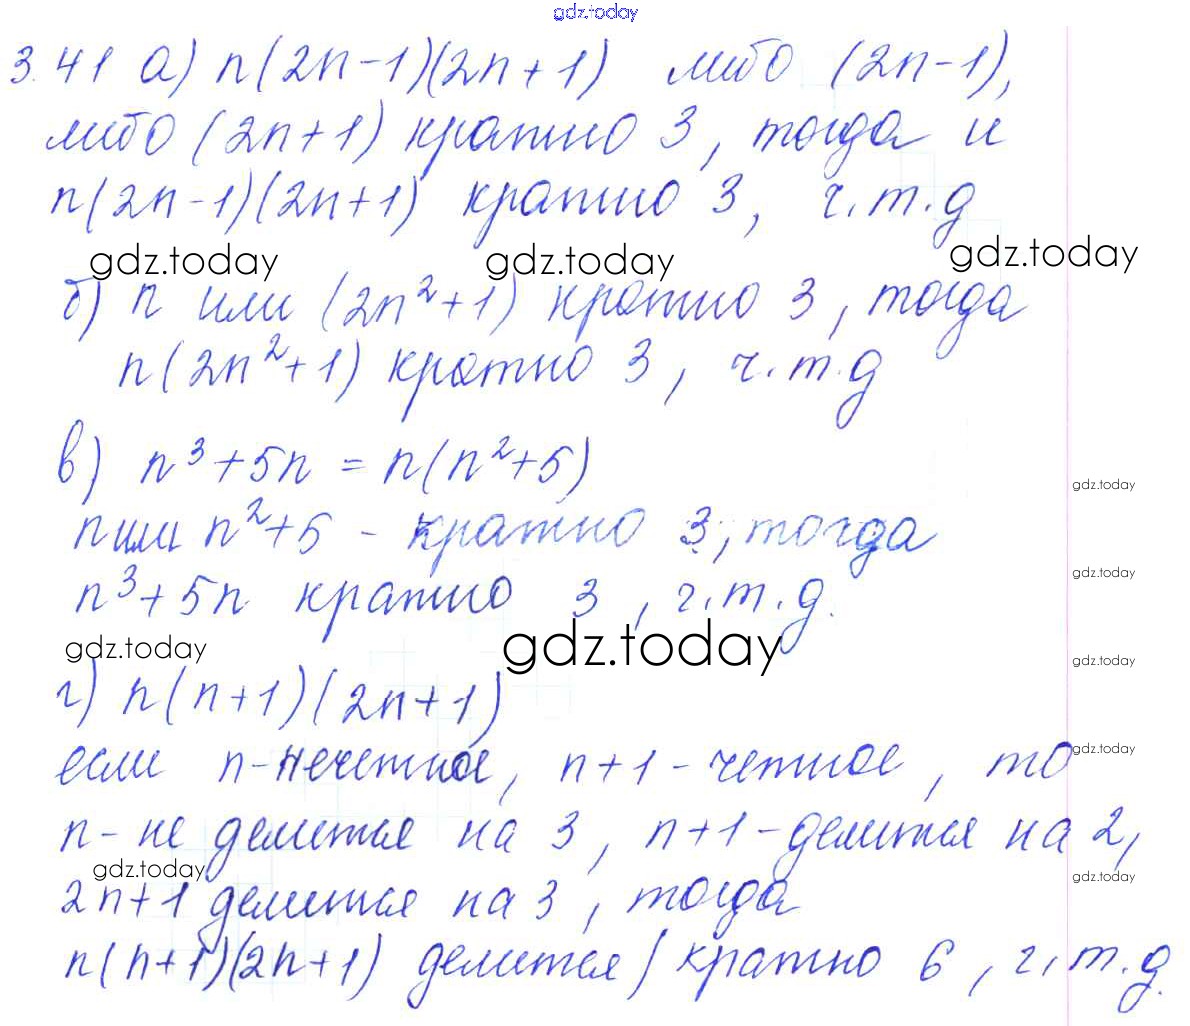 gdz.today
3.41 а) n(2n-1)(2n+1) либо (2n-1),
либо (2n+1) кратно 3, тогда и
n(2n-1)(2n+1) кратно 3, ч.т.д
gdz.today gdz.today gdz.today
б) n или (2n²+1) кратно 3, тогда
n(2n²+1) кратно 3, ч.т.д
в) n³+5n = n(n²+5)
gdz.today
n или n²+5 - кратно 3, тогда
gdz.today
n³+5n кратно 3, ч.т.д.
gdz.today gdz.today gdz.today
г) n(n+1)(2n+1)
если n-нечетное, n+1-четное, то
gdz.today
n- не делится на 3, n+1-делится на 2,
gdz.today gdz.today
2n+1 делится на 3, тогда
n(n+1)(2n+1) делится/кратно 6, ч.т.д.